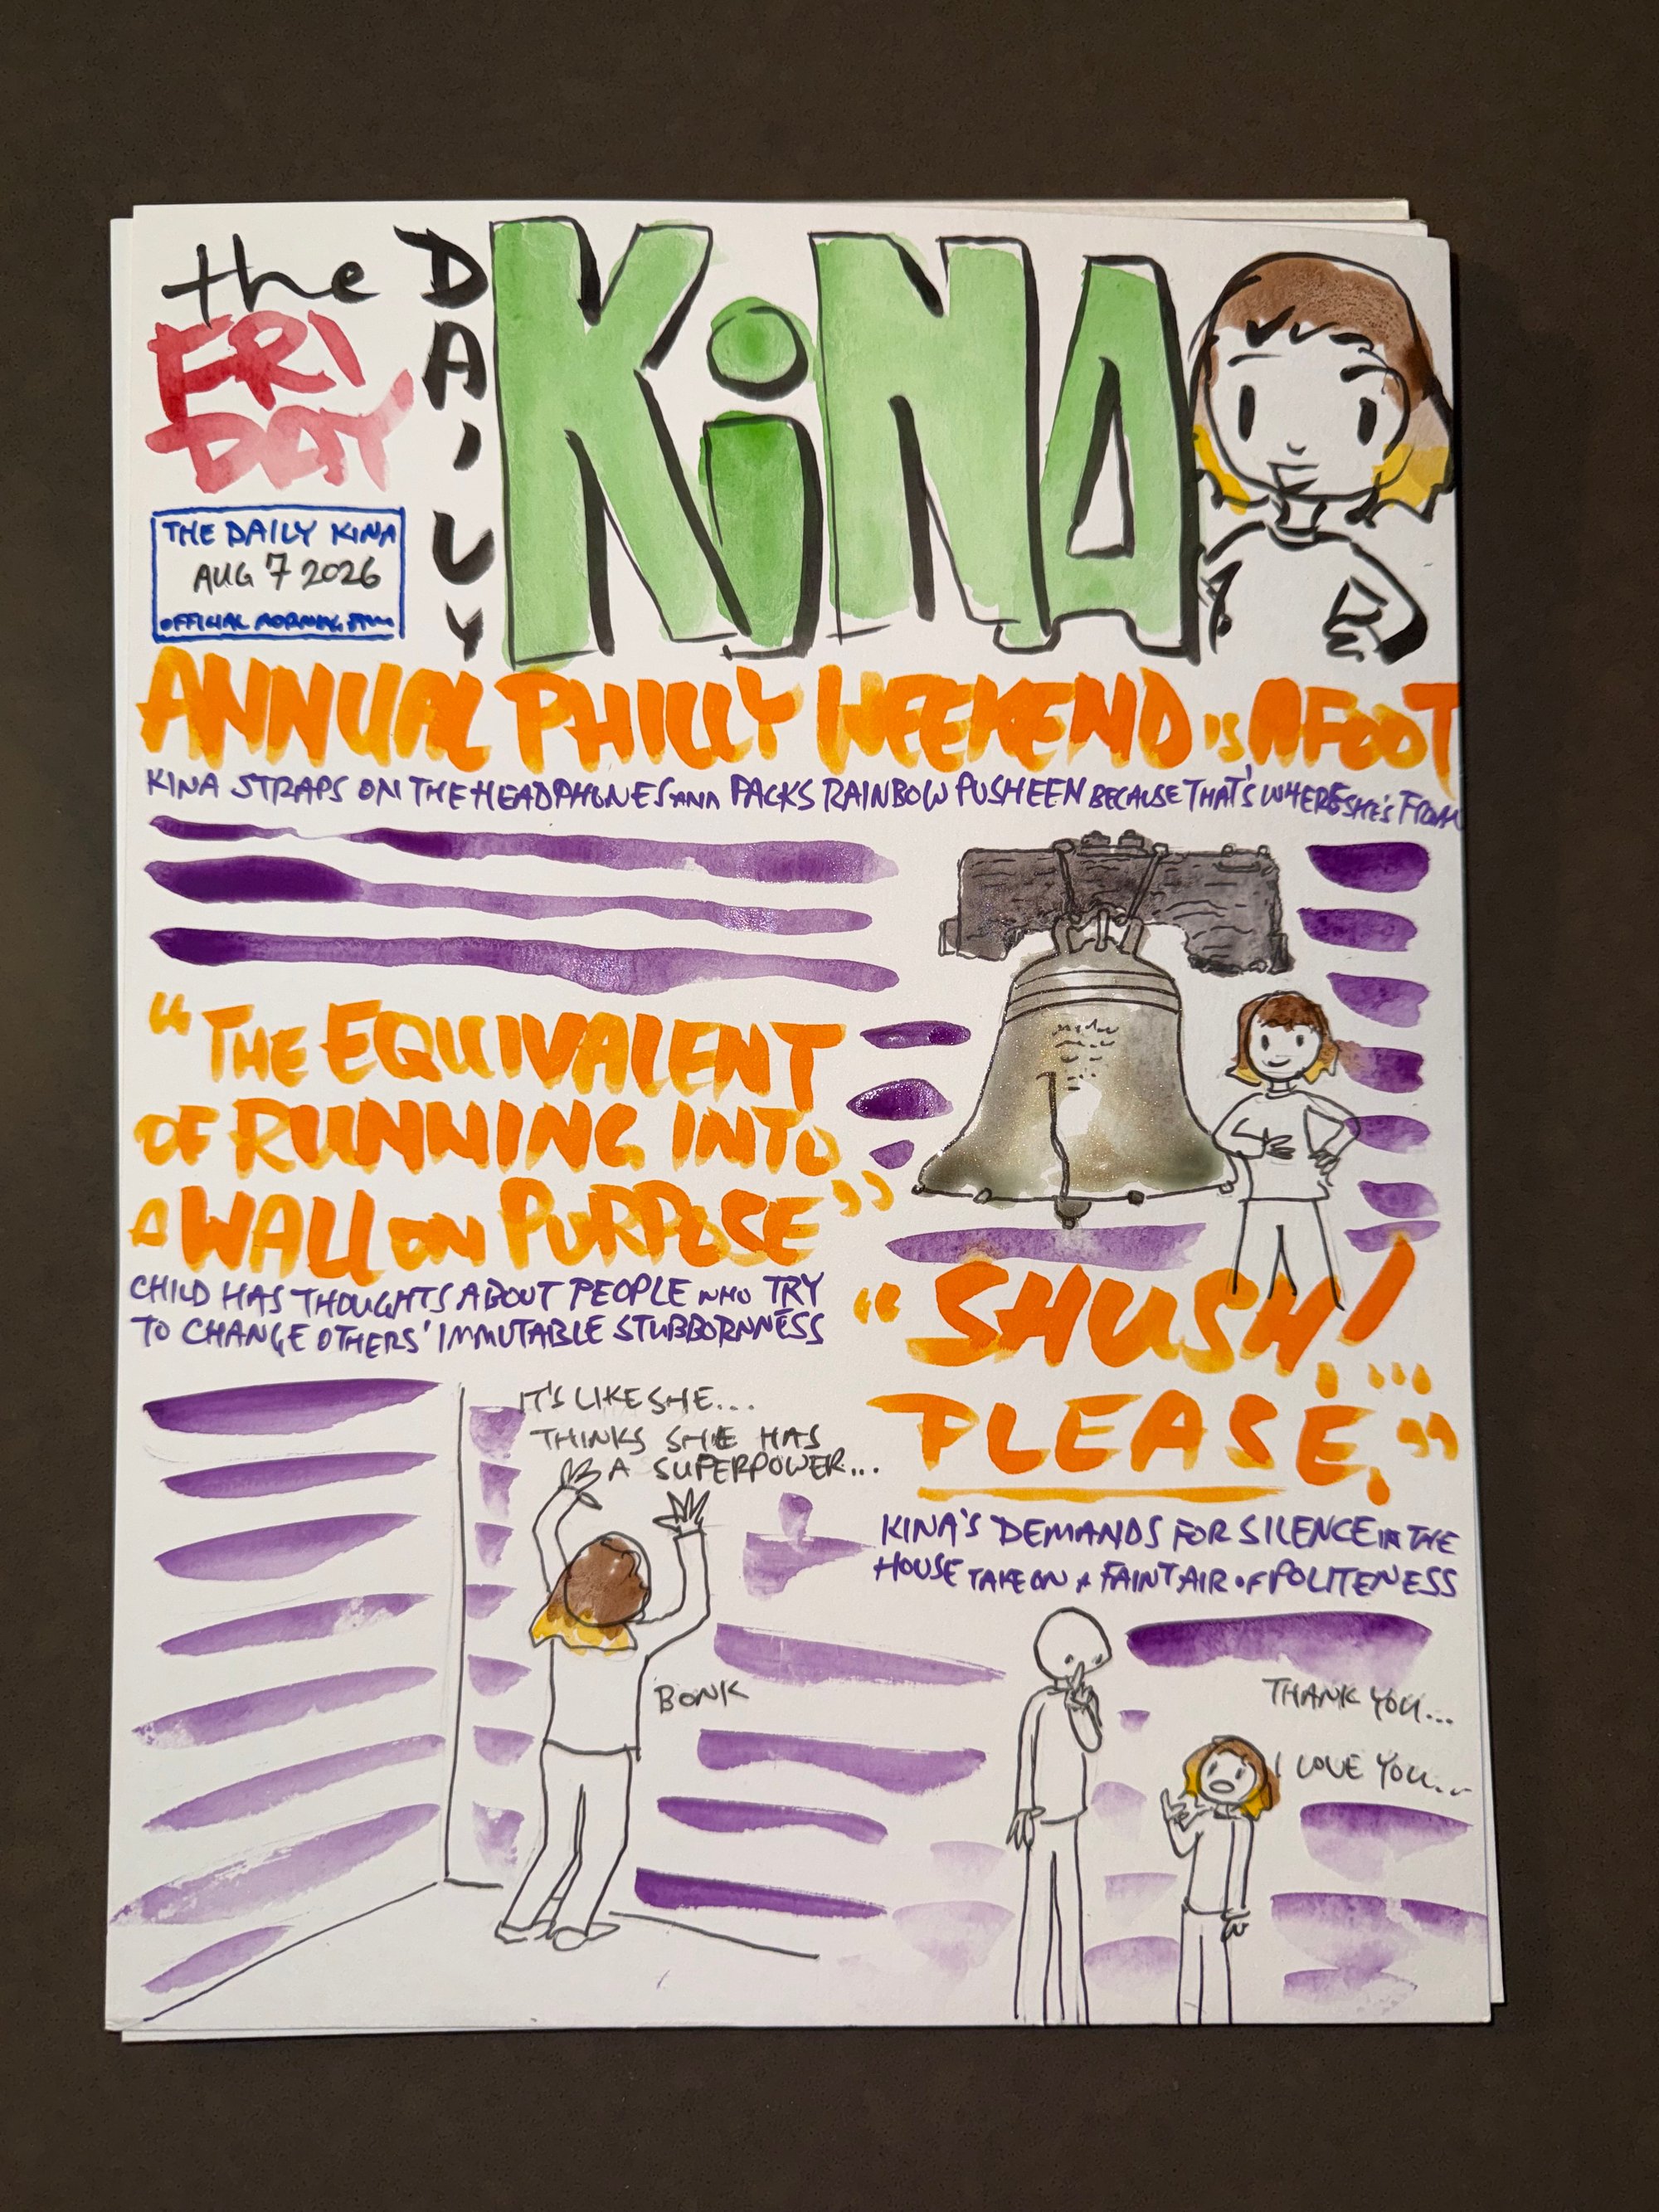 the
FRI
DAY
DAILY
KiNA
THE DAILY KINA
AUG 7 2026
OFFICIAL MORNING
ANNUAL PHILLY WEEKEND is AFOOT
KINA STRAPS ON THE HEADPHONES AND PACKS RAINBOW PUSHEEN BECAUSE THAT'S WHERE SHE'S FROM
"THE EQUIVALENT
OF RUNNING INTO
A WALL ON PURPOSE"
CHILD HAS THOUGHTS ABOUT PEOPLE WHO TRY
TO CHANGE OTHERS' IMMUTABLE STUBBORNNESS
IT'S LIKE SHE...
THINKS SHE HAS
A SUPERPOWER...
BONK
"SHUSH!
...
PLEASE."
KINA'S DEMANDS FOR SILENCE IN THE
HOUSE TAKE ON A FAINT AIR OF POLITENESS
THANK YOU...
I LOVE YOU...